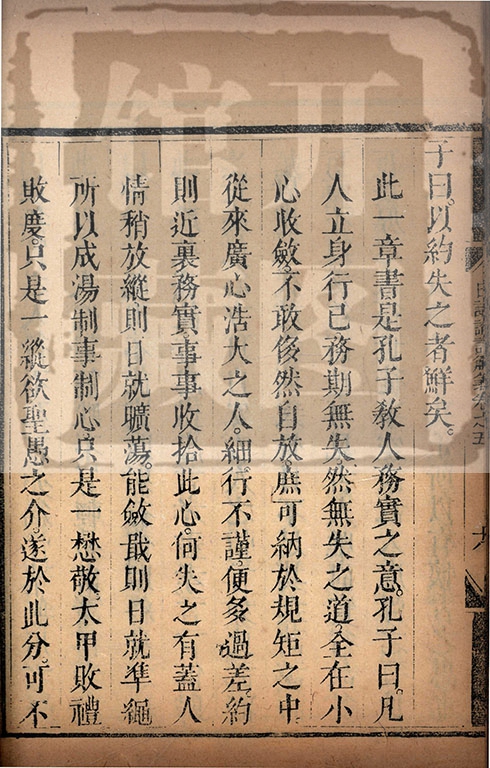 子曰。以約失之者鮮矣。
此一章書是孔子教人務實之意。孔子曰。凡
人立身行己務期無失。然無失之道。全在小
心收斂。不敢侈然自放。庶可納於規矩之中。
從來廣心浩大之人。細行不謹。便多過差。約
則近裏務實。事事收拾此心。何失之有。蓋人
情稍放縱則日就曠蕩。能斂戢則日就準繩
所以成湯制事制心。只是一懋敬。太甲敗禮
敗度。只是一縱欲。聖愚之介。遂於此分。可不